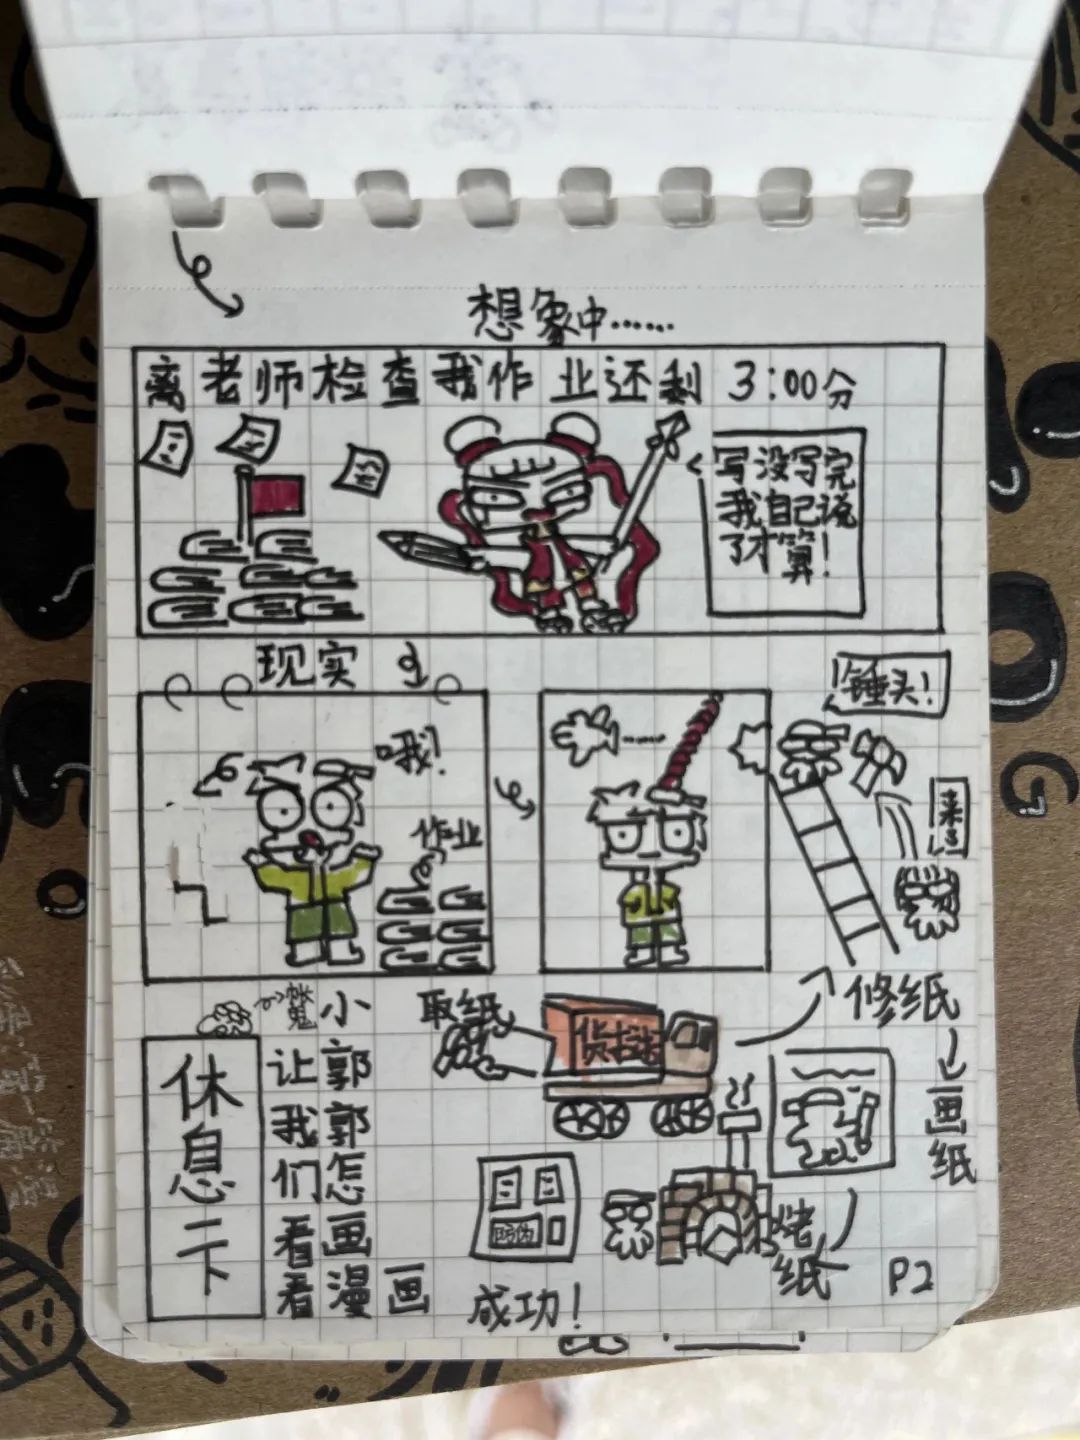 想象中……
离老师检查我作业还剩 3:00分
写没写完
我自己说
了才算!
现实
哦!
作业
锤头!
来了
小
让郭
我郭
们怎
看画
看漫画
休息一下
取纸
修纸
画纸
烤纸
防伪
成功!
P2